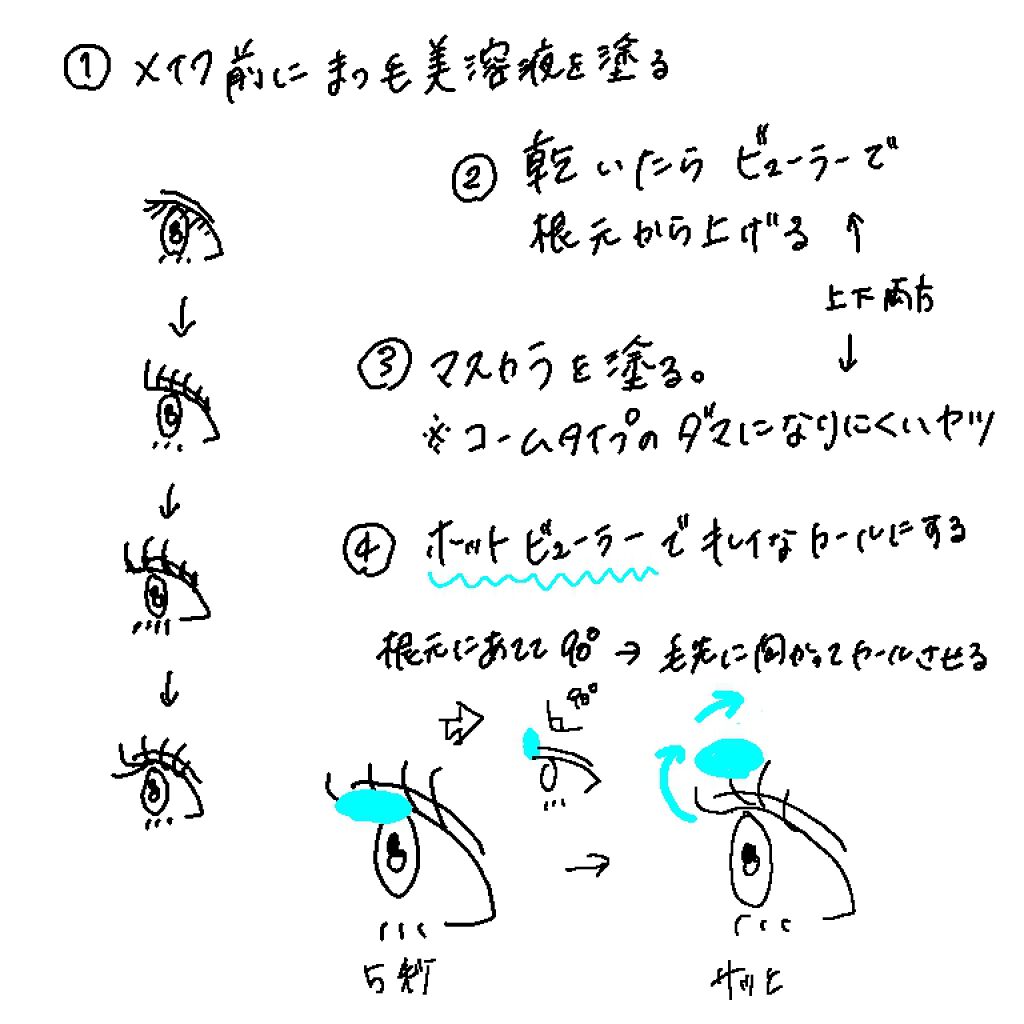 ① メイク前にまつ毛美溶液を塗る
② 乾いたらビューラーで
根元から上げる ↑
上下両方
↓
③ マスカラを塗る。
※コームタイプのダマになりにくいヤツ
④ ホットビューラーでキレイなカールにする
根元にあてて90° → 毛先に向かってカールさせる
90°
5秒
サッと